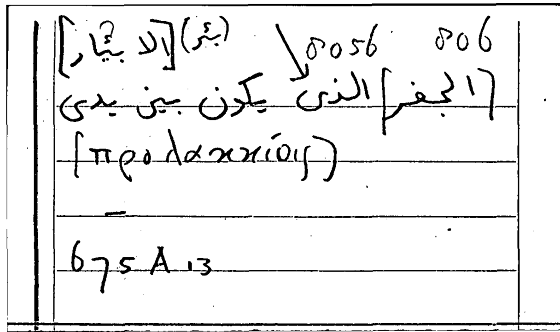 [الابئار] (بئر) 8056 806
[الجفر] الذى يكون بين يدى
(προλακκίοις)
–
675 A 13